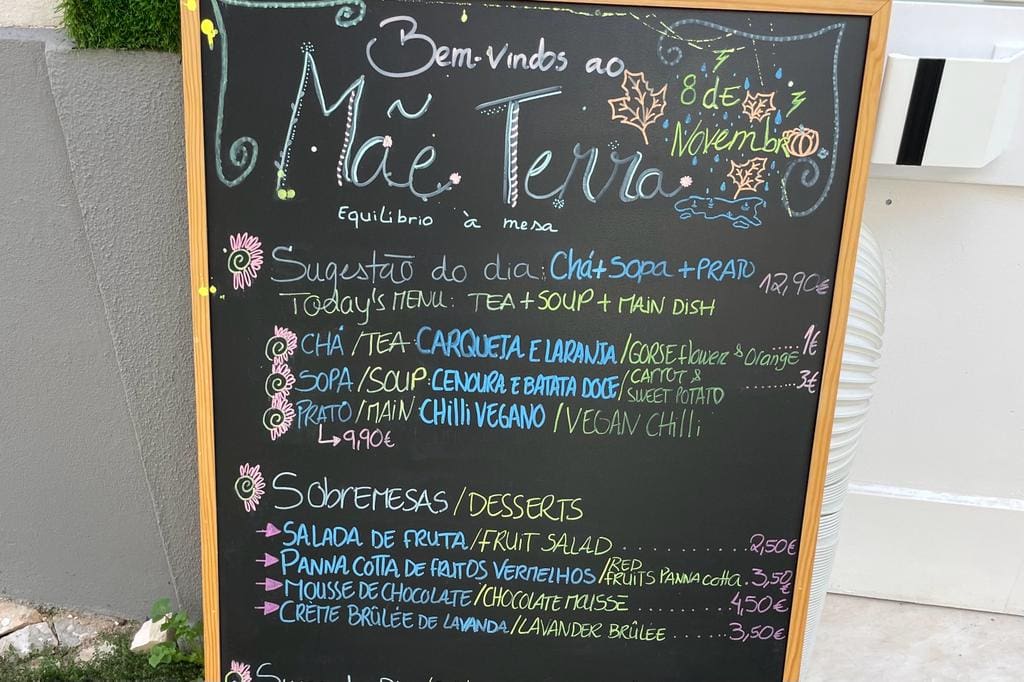 Bem-vindos ao
Mãe Terra
8 de
Novembro
Equilibrio à mesa
Sugestão do dia: Chá + Sopa + PRATO 12,90€
Today's MENU: TEA + SOUP + MAIN DISH
CHÁ /TEA CARQUEJA E LARANJA /GORSE flower & Orange ..... 1€
SOPA /SOUP: CENOURA E BATATA DOCE/ CARROT & SWEET POTATO ....... 3€
PRATO /MAIN CHILLI VEGANO /VEGAN CHILLI
↳ 9,90€
SOBREMESAS /DESSERTS
SALADA DE FRUTA /FRUIT SALAD ........... 2,50€
PANNA COTTA DE FRUTOS VERMELHOS /RED FRUITS PANNA COTTA . 3,50€
MOUSSE DE CHOCOLATE /CHOCOLATE MOUSSE ........ 4,50€
CRÈME BRÛLÉE DE LAVANDA /LAVANDER BRÛLÉE ...... 3,50€